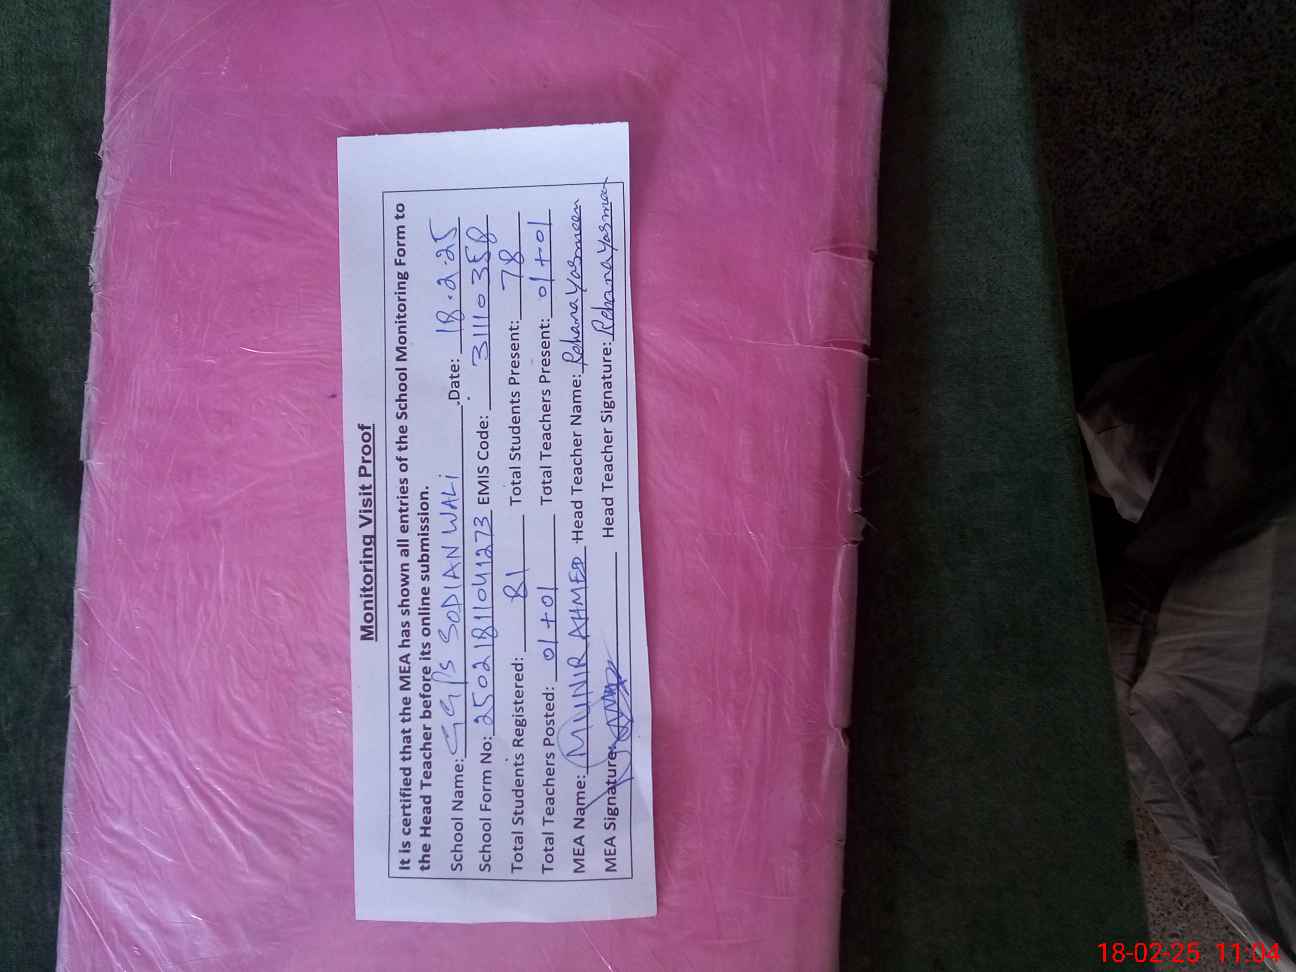 Monitoring Visit Proof
It is certified that the MEA has shown all entries of the School Monitoring Form to
the Head Teacher before its online submission.
School Name: GGPS SODIAN WALI Date: 18.2.25
School Form No: 2502181104 1273 EMIS Code: 31110358
Total Students Registered: 81 Total Students Present: 78
Total Teachers Posted: 01+01 Total Teachers Present: 01+01
MEA Name: MUNIR AHMED Head Teacher Name: Rehana Yasmeen
MEA Signature: Head Teacher Signature: Rehana Yasmeen
18-02-25 11:04